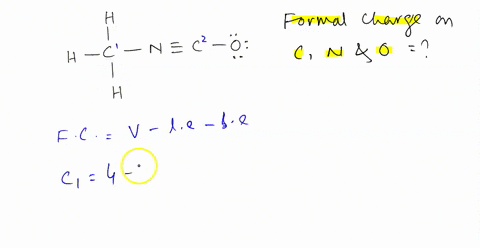 H
H - C¹ - N ≡ C² - Ö:
H
Formal charge on
C, N & O = ?
F.C. = V - l.e - b.e
C₁ = 4 -